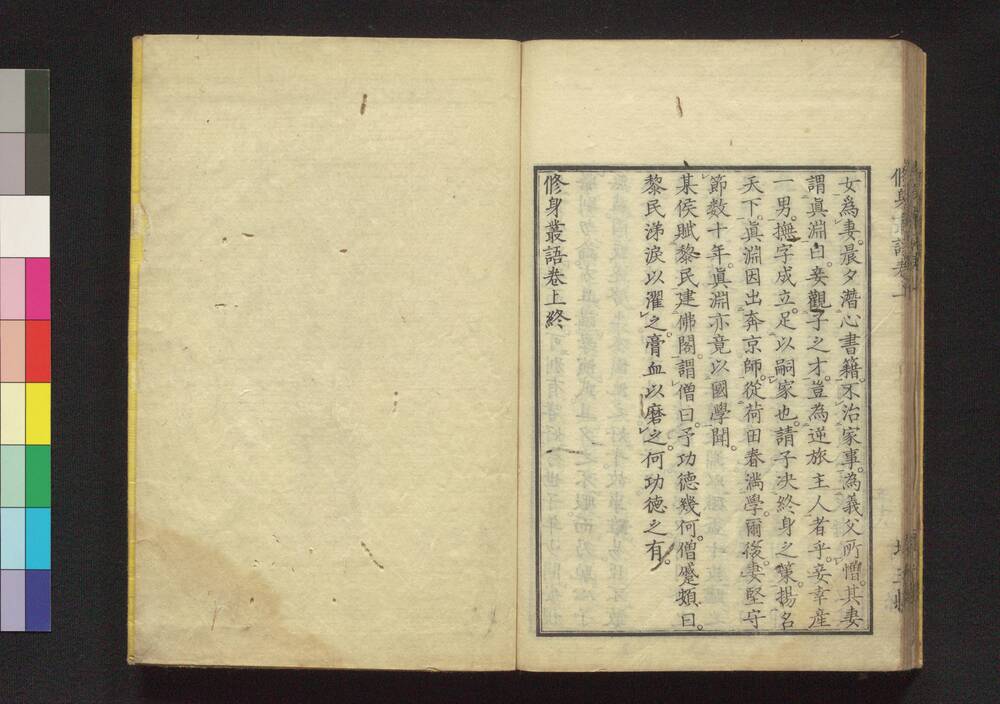 女爲妻。晨夕潛心書籍。不治家事。為義父所憎。其妻
謂眞淵曰。妾觀子之才。豈為逆旅主人者乎。妾幸產
一男。撫字成立。足以嗣家也。請子決終身之策。揚名
天下。眞淵因出奔京師。從荷田春満學。爾後妻堅守
節数十年。眞淵亦竟以國學聞。
某侯賦黎民建佛閣。謂僧曰。予功德幾何。僧蹙頞曰。
黎民涕淚以濯之。膏血以磨之。何功德之有。
修身叢語卷上終
修身